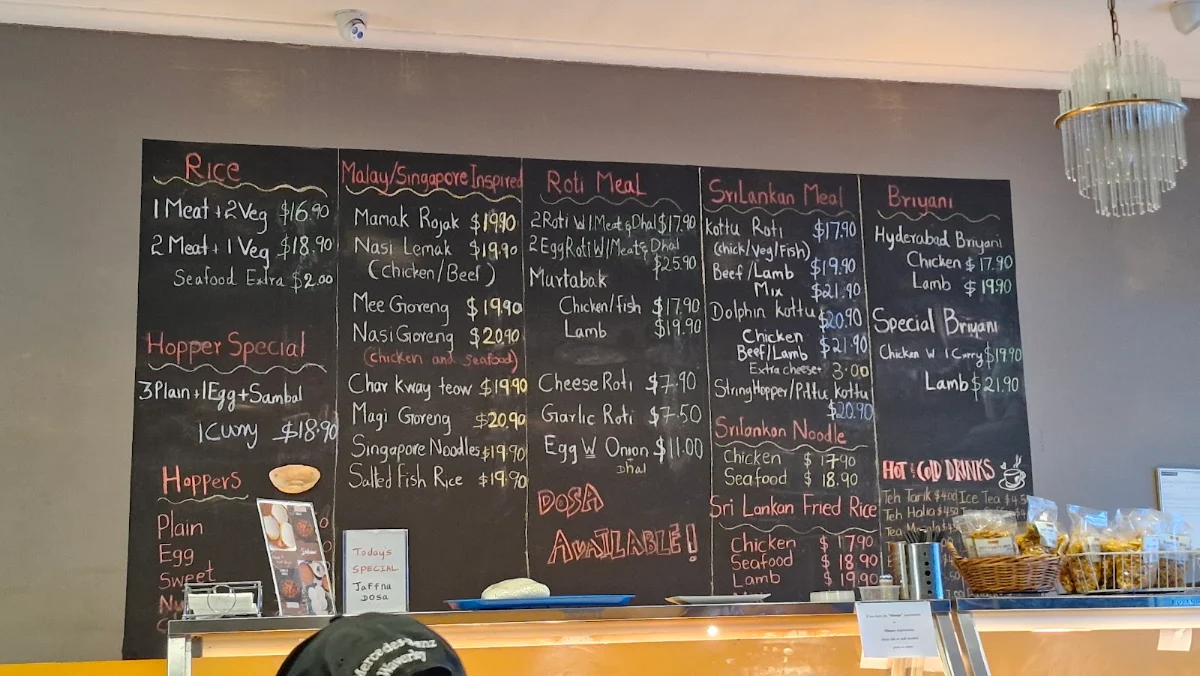 Rice
1 Meat + 2 Veg $16.90
2 Meat + 1 Veg $18.90
Seafood Extra $2.00
Hopper Special
3 Plain + 1 Egg + Sambal
1 Curry $18.90
Hoppers
Plain
Egg
Sweet
Malay/Singapore Inspired
Mamak Rojak $19.90
Nasi Lemak $19.90
(Chicken/Beef)
Mee Goreng $19.90
Nasi Goreng $20.90
(chicken and seafood)
Char Kway teow $19.90
Magi Goreng $20.90
Singapore Noodles $19.90
Salted Fish Rice $19.90
Todays
SPECIAL
Jaffna
DOSA
Roti Meal
2 Roti W 1 Meat & Dhal $17.90
2 Egg Roti W 1 Meat & Dhal
$25.90
Murtabak
Chicken/fish $17.90
Lamb $19.90
Cheese Roti $7.90
Garlic Roti $7.50
Egg W Onion $11.00
Dhal
DOSA
AVAILABLE!
SriLankan Meal
Kottu Roti $17.90
(chick/Veg/Fish)
Beef/Lamb $19.90
Mix $21.90
Dolphin Kottu $20.90
Chicken
Beef/Lamb $21.90
Extra cheese + 3.00
StringHopper/Pittu Kottu
$20.90
Srilankan Noodle
Chicken $17.90
Seafood $18.90
Sri Lankan Fried Rice
Chicken $17.90
Seafood $18.90
Lamb $19.90
Briyani
Hyderabad Briyani
Chicken $17.90
Lamb $19.90
Special Briyani
Chicken W 1 Curry $19.90
Lamb $21.90
HOT & COLD DRINKS
Teh Tarik $4.00 Ice Tea $4.5
Teh Halia $4.50
Tea
Mercedes-Benz
Waverley